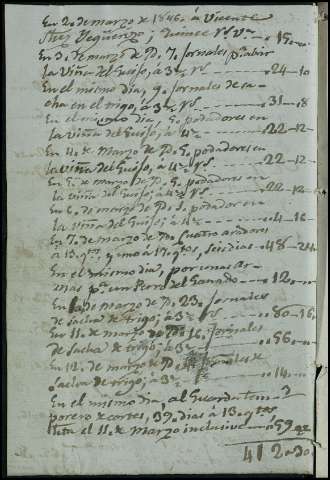 En 2,, de marzo de 1846, á Vicente
Quince rs. vn. 15,,
En 3,, de marzo de D. 7,, Jornales p.a abrir
la Viña del Guijo, á 3½ rs. 24 - 1
En el mismo dia, 9,, Jornales de sa
cha en el trigo, á 3½ rs. 31 - 8
En el mismo dia, 5,, podadores en
la viña del Guijo, á 4½ 22 - 12
En 4,, de Marzo de D. 5,, podadores en
la viña del Guijo, á 4½ rs. 22 - 12
En 5,, de marzo de D. 5,, podadores en
la viña del Guijo, á 4½ rs. 22 - 12
En 6,, de marzo de D. podador en
la viña del Guijo, á 4½ 4 - 16
En 7,, de Marzo de D. Cuatro aradores
seis dias 48 - 24
En el mismo dia, por unas
mas p.a un Perro del Ganado 12
de Marzo de D. 23,, Jornales
de sacha de trigo, á 3½ rs. 80 - 16
En 11,, de marzo de D. 16,, Jornales
de sacha de trigo, á 3½ 56
En 12,, de marzo de D. Jornales de
sacha de trigo, á 3½ 14
En el mismo dia, al Guarda tem
porero de cortes, 39,, dias á 13,, qtos.
hta el 11,, de Marzo inclusive 59
412 - 30